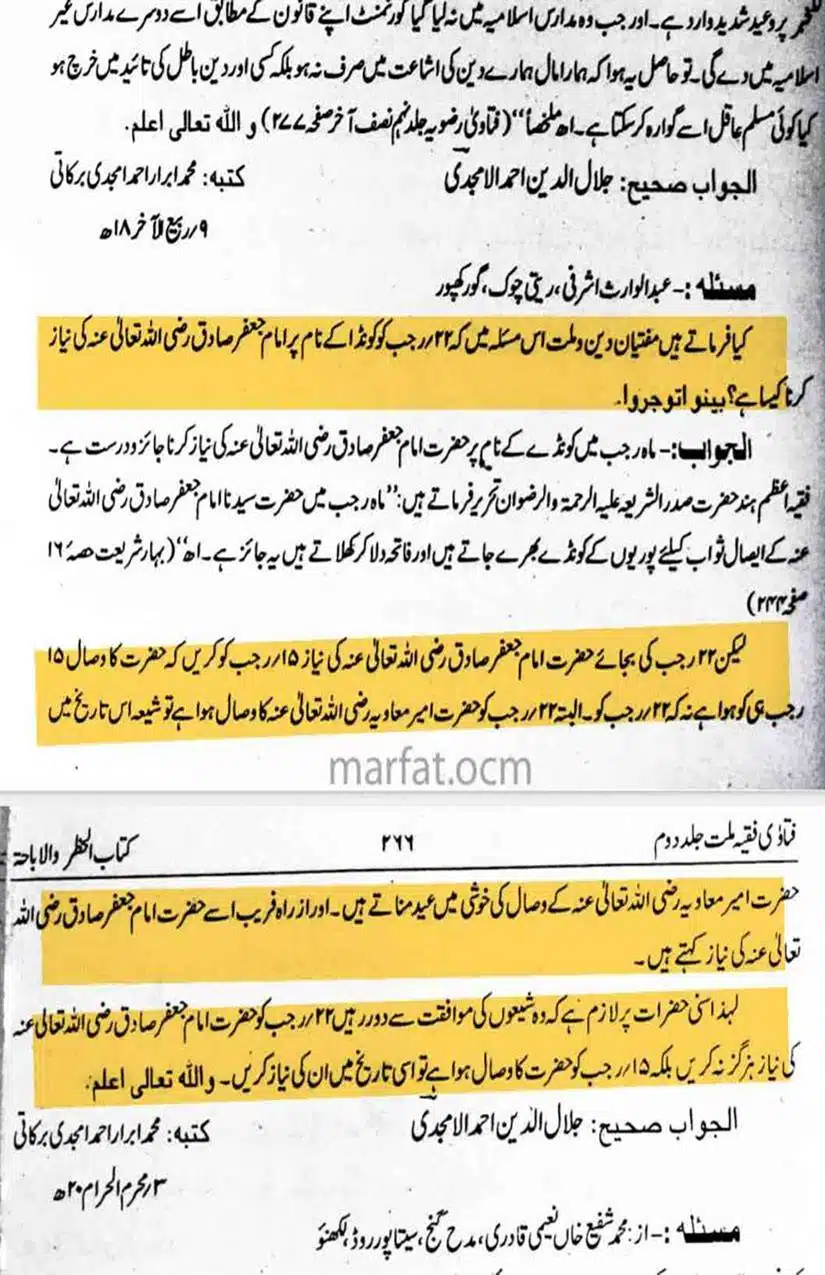 پر وعید شدید وارد ہے۔ اور جب وہ مدارس اسلامیہ میں نہ لیا گیا گورنمنٹ اپنے قانون کے مطابق اسے دوسرے مدارس غیر
اسلامیہ میں دے گی۔ تو حاصل یہ ہوا کہ ہمارا مال ہمارے دین کی اشاعت میں صرف نہ ہو بلکہ کسی اور دین باطل کی تائید میں خرچ ہو
کیا کوئی مسلم عاقل اسے گوارہ کر سکتا ہے۔ اھ ملخصاً" (فتاویٰ رضویہ جلد نہم نصف آخر صفحہ ۲۷۷) و الله تعالى اعلم.
الجواب صحیح: جلال الدین احمد الامجدی
کتبه: محمد ابرار احمد امجدی برکاتی
۹/ ربیع الآخر ۱۸ھ
مسئله:- عبدالوارث اشرفی، ریتی چوک، گورکھپور
کیا فرماتے ہیں مفتیان دین و ملت اس مسئلہ میں کہ ۲۲/ رجب کو کونڈا کے نام پر امام جعفر صادق رضی اللہ تعالیٰ عنہ کی نیاز
کرنا کیسا ہے؟ بینوا توجروا۔
الجواب:- ماہ رجب میں کونڈے کے نام پر حضرت امام جعفر صادق رضی اللہ تعالیٰ عنہ کی نیاز کرنا جائز و درست ہے۔
فقیہ اعظم ہند حضرت صدر الشریعہ علیہ الرحمۃ والرضوان تحریر فرماتے ہیں: "ماہ رجب میں حضرت سیدنا امام جعفر صادق رضی اللہ تعالیٰ
عنہ کے ایصال ثواب کیلئے پوریوں کے کونڈے بھرے جاتے ہیں اور فاتحہ دلا کر کھلاتے ہیں یہ جائز ہے۔ اھ" (بہار شریعت حصہ ۱۶
صفحہ ۲۴۴)
لیکن ۲۲ رجب کی بجائے حضرت امام جعفر صادق رضی اللہ تعالیٰ عنہ کی نیاز ۱۵/ رجب کو کریں کہ حضرت کا وصال ۱۵
رجب ہی کو ہوا ہے نہ کہ ۲۲/ رجب کو۔ البتہ ۲۲/ رجب کو حضرت امیر معاویہ رضی اللہ تعالیٰ عنہ کا وصال ہوا ہے تو شیعہ اس تاریخ میں
marfat.ocm
فتاوٰی فقیہ ملت جلد دوم
۲۶۶
کتاب الحظر والاباحۃ
حضرت امیر معاویہ رضی اللہ تعالیٰ عنہ کے وصال کی خوشی میں عید مناتے ہیں۔ اور از راہ فریب اسے حضرت امام جعفر صادق رضی اللہ
تعالیٰ عنہ کی نیاز کہتے ہیں۔
لہذا سنی حضرات پر لازم ہے کہ وہ شیعوں کی موافقت سے دور رہیں ۲۲/ رجب کو حضرت امام جعفر صادق رضی اللہ تعالیٰ عنہ
کی نیاز ہرگز نہ کریں بلکہ ۱۵/ رجب کو حضرت کا وصال ہوا ہے تو اسی تاریخ میں ان کی نیاز کریں۔ والله تعالى اعلم.
الجواب صحیح: جلال الدین احمد الامجدی
کتبه: محمد ابرار احمد امجدی برکاتی
۳/ محرم الحرام ۲۰ھ
مسئله:- از: محمد شفیع خاں نعیمی قادری، مدح گنج، سیتاپور روڈ، لکھنؤ